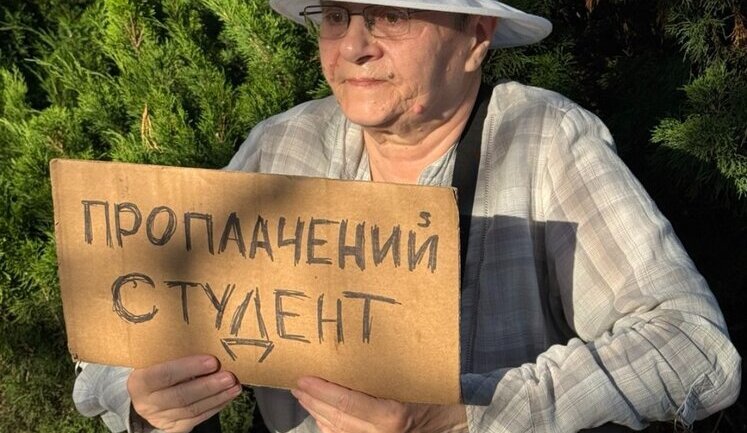 ПРОПЛАЧЕНИЙ
СТУДЕНТ